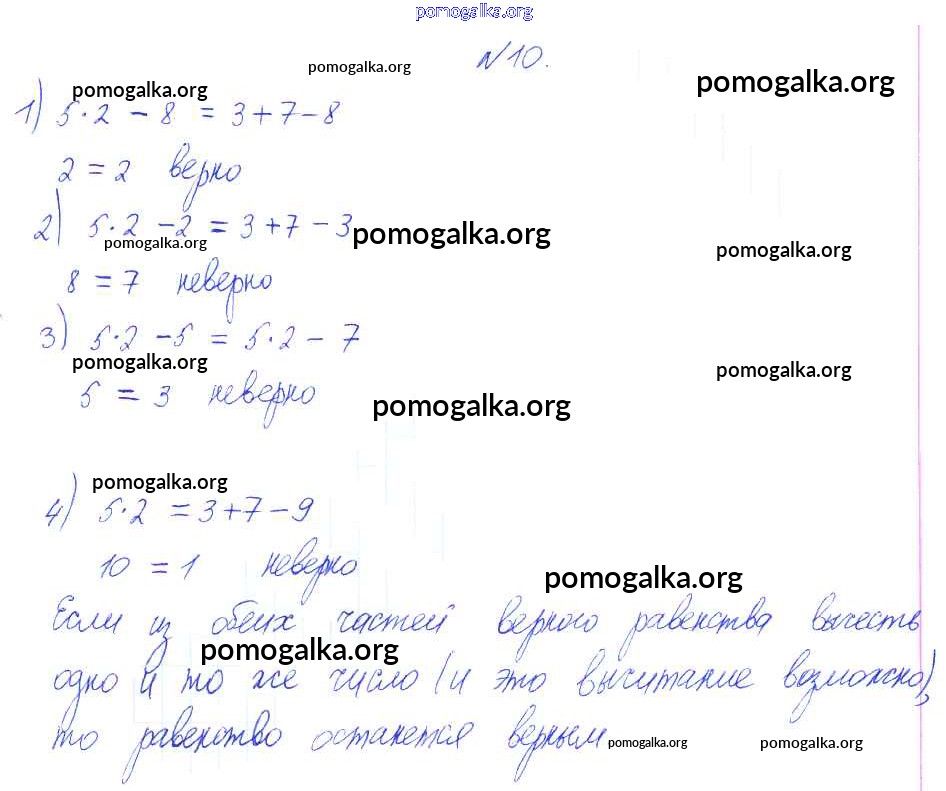 pomogalka.org
№10.
pomogalka.org
pomogalka.org
pomogalka.org
1) 5·2 - 8 = 3+7-8
2 = 2 верно
2) 5·2 -2 = 3+7-3
pomogalka.org
pomogalka.org
pomogalka.org
8 = 7 неверно
3) 5·2 -5 = 5·2 - 7
pomogalka.org
pomogalka.org
5 = 3 неверно
pomogalka.org
pomogalka.org
4) 5·2 = 3+7-9
10 = 1 неверно
pomogalka.org
Если из обеих частей верного равенства вычесть
pomogalka.org
одно и то же число (и это вычитание возможно),
то равенство останется верным
pomogalka.org
pomogalka.org